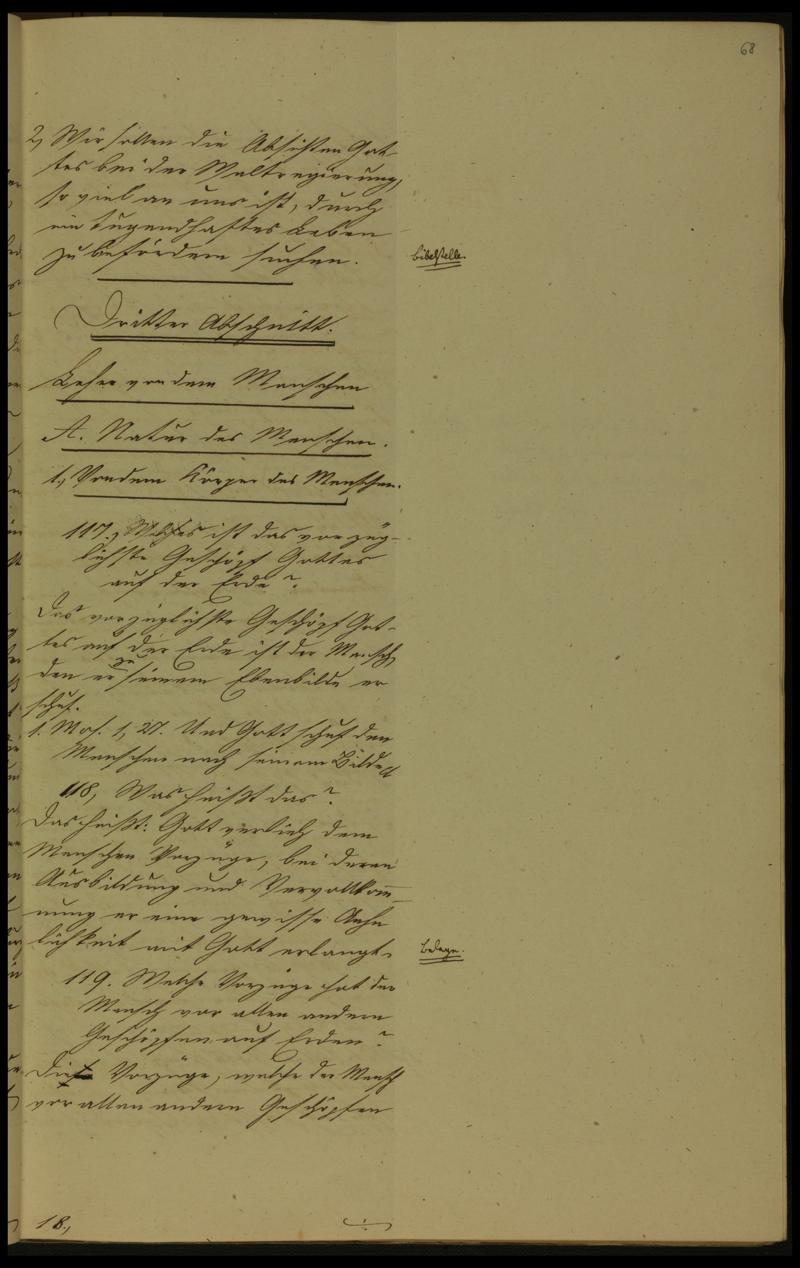 68
2, Wir sollen die Absichten Got-
tes bei der Weltregierung,
so viel an uns ist, durch
ein tugendhaftes Leben
zu befördern suchen.
Bibelstelle.
Dritter Abschnitt.
Lehre von dem Menschen
A. Natur des Menschen.
1., Von dem Körper des Menschen.
117., Welches ist das vorzüg-
lichste Geschöpf Gottes
auf der Erde?
Das vorzüglichste Geschöpf Got-
tes auf der Erde ist der Mensch,
den er zu seinem Ebenbilde er
schuf.
1. Mos. 1, 27. Und Gott schuf den
Menschen nach seinem Bilde
118, Was heißt das?
Das heißt: Gott verlieh dem
Menschen Vorzüge, bei deren
Ausbildung und Vervollkom̅-
nung er eine gewisse Aehn
lichkeit mit Gott erlangt.
Belege.
119. Welche Vorzüge hat der
Mensch vor allen andern
Geschöpfen auf Erden?
Die Vorzüge, welche der Mensch
vor allen andern Geschöpfen
18.,